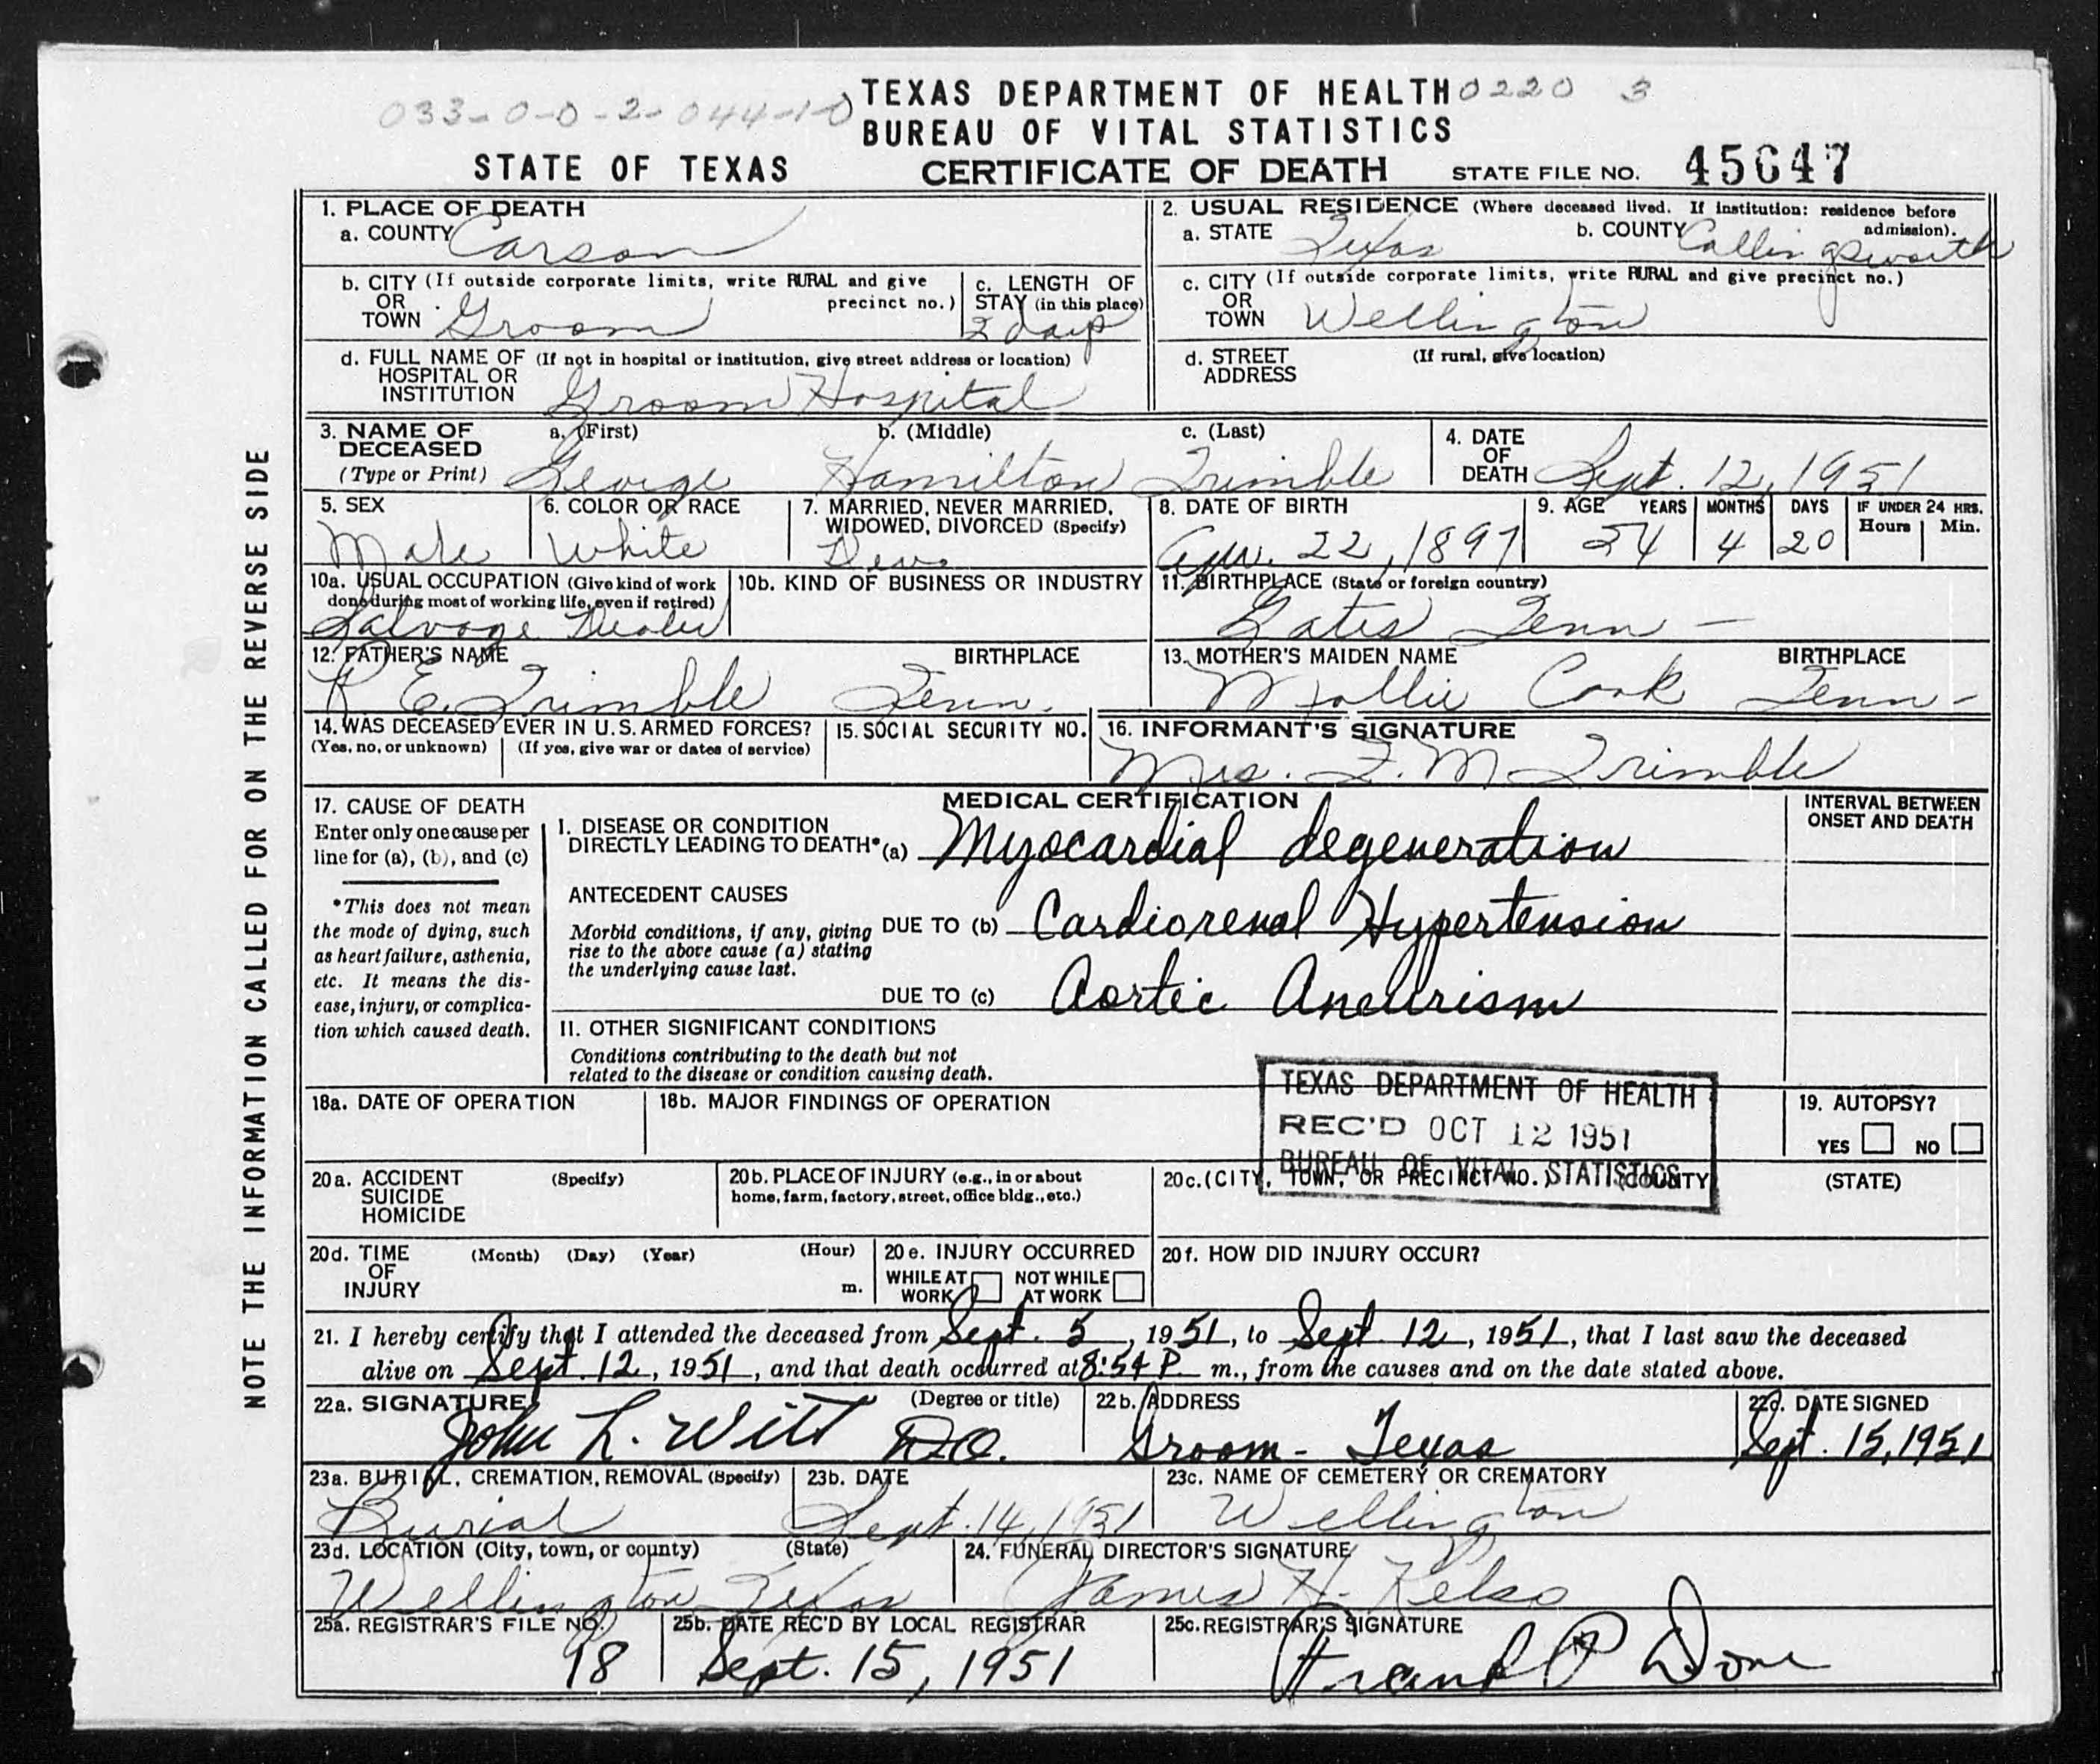 033-0-0-2-044-1-0 TEXAS DEPARTMENT OF HEALTH 0220 3
BUREAU OF VITAL STATISTICS
STATE OF TEXAS CERTIFICATE OF DEATH STATE FILE NO. 45647
NOTE THE INFORMATION CALLED FOR ON THE REVERSE SIDE
1. PLACE OF DEATH
a. COUNTY Carson
2. USUAL RESIDENCE (Where deceased lived. If institution: residence before admission).
a. STATE Texas b. COUNTY Collingsworth
b. CITY (If outside corporate limits, write RURAL and give precinct no.)
OR
TOWN Groom
c. LENGTH OF
STAY (in this place)
2 days
c. CITY (If outside corporate limits, write RURAL and give precinct no.)
OR
TOWN Wellington
d. FULL NAME OF (If not in hospital or institution, give street address or location)
HOSPITAL OR
INSTITUTION Groom Hospital
d. STREET (If rural, give location)
ADDRESS
3. NAME OF a. (First) b. (Middle) c. (Last)
DECEASED
(Type or Print) George Hamilton Trimble
4. DATE
OF
DEATH Sept. 12, 1951
5. SEX
Male
6. COLOR OR RACE
White
7. MARRIED, NEVER MARRIED,
WIDOWED, DIVORCED (Specify)
8. DATE OF BIRTH
Apr. 22, 1897
9. AGE YEARS MONTHS DAYS IF UNDER 24 HRS.
Hours Min.
54 4 20
10a. USUAL OCCUPATION (Give kind of work
done during most of working life, even if retired)
Salvage Dealer
10b. KIND OF BUSINESS OR INDUSTRY
11. BIRTHPLACE (State or foreign country)
Gates Tenn -
12. FATHER'S NAME BIRTHPLACE
R E Trimble Tenn.
13. MOTHER'S MAIDEN NAME BIRTHPLACE
Mollie Cook Tenn -
14. WAS DECEASED EVER IN U.S. ARMED FORCES?
(Yes, no, or unknown) (If yes, give war or dates of service)
15. SOCIAL SECURITY NO.
16. INFORMANT'S SIGNATURE
Mrs. F. M Trimble
17. CAUSE OF DEATH
Enter only one cause per
line for (a), (b), and (c)
*This does not mean
the mode of dying, such
as heart failure, asthenia,
etc. It means the dis-
ease, injury, or complica-
tion which caused death.
MEDICAL CERTIFICATION
INTERVAL BETWEEN
ONSET AND DEATH
I. DISEASE OR CONDITION
DIRECTLY LEADING TO DEATH* (a) Myocardial degeneration
ANTECEDENT CAUSES
Morbid conditions, if any, giving
rise to the above cause (a) stating
the underlying cause last.
DUE TO (b) Cardiorenal Hypertension
DUE TO (c) Aortic Aneurism
II. OTHER SIGNIFICANT CONDITIONS
Conditions contributing to the death but not
related to the disease or condition causing death.
TEXAS DEPARTMENT OF HEALTH
REC'D OCT 12 1951
BUREAU OF VITAL STATISTICS
18a. DATE OF OPERATION
18b. MAJOR FINDINGS OF OPERATION
19. AUTOPSY?
YES NO
20a. ACCIDENT (Specify)
SUICIDE
HOMICIDE
20b. PLACE OF INJURY (e.g., in or about
home, farm, factory, street, office bldg., etc.)
20c. (CITY, TOWN, OR PRECINCT NO.) (COUNTY) (STATE)
20d. TIME (Month) (Day) (Year) (Hour)
OF
INJURY m.
20e. INJURY OCCURRED
WHILE AT WORK NOT WHILE AT WORK
20f. HOW DID INJURY OCCUR?
21. I hereby certify that I attended the deceased from Sept. 5, 1951, to Sept 12, 1951, that I last saw the deceased
alive on Sept. 12, 1951, and that death occurred at 8:54 P. m., from the causes and on the date stated above.
22a. SIGNATURE (Degree or title)
John L. Witt D.O.
22b. ADDRESS
Groom - Texas
22c. DATE SIGNED
Sept. 15, 1951
23a. BURIAL, CREMATION, REMOVAL (Specify)
Burial
23b. DATE
Sept. 14, 1951
23c. NAME OF CEMETERY OR CREMATORY
Wellington
23d. LOCATION (City, town, or county) (State)
Wellington Texas
24. FUNERAL DIRECTOR'S SIGNATURE
James H. Kelso
25a. REGISTRAR'S FILE NO.
98
25b. DATE REC'D BY LOCAL REGISTRAR
Sept. 15, 1951
25c. REGISTRAR'S SIGNATURE
Frank P